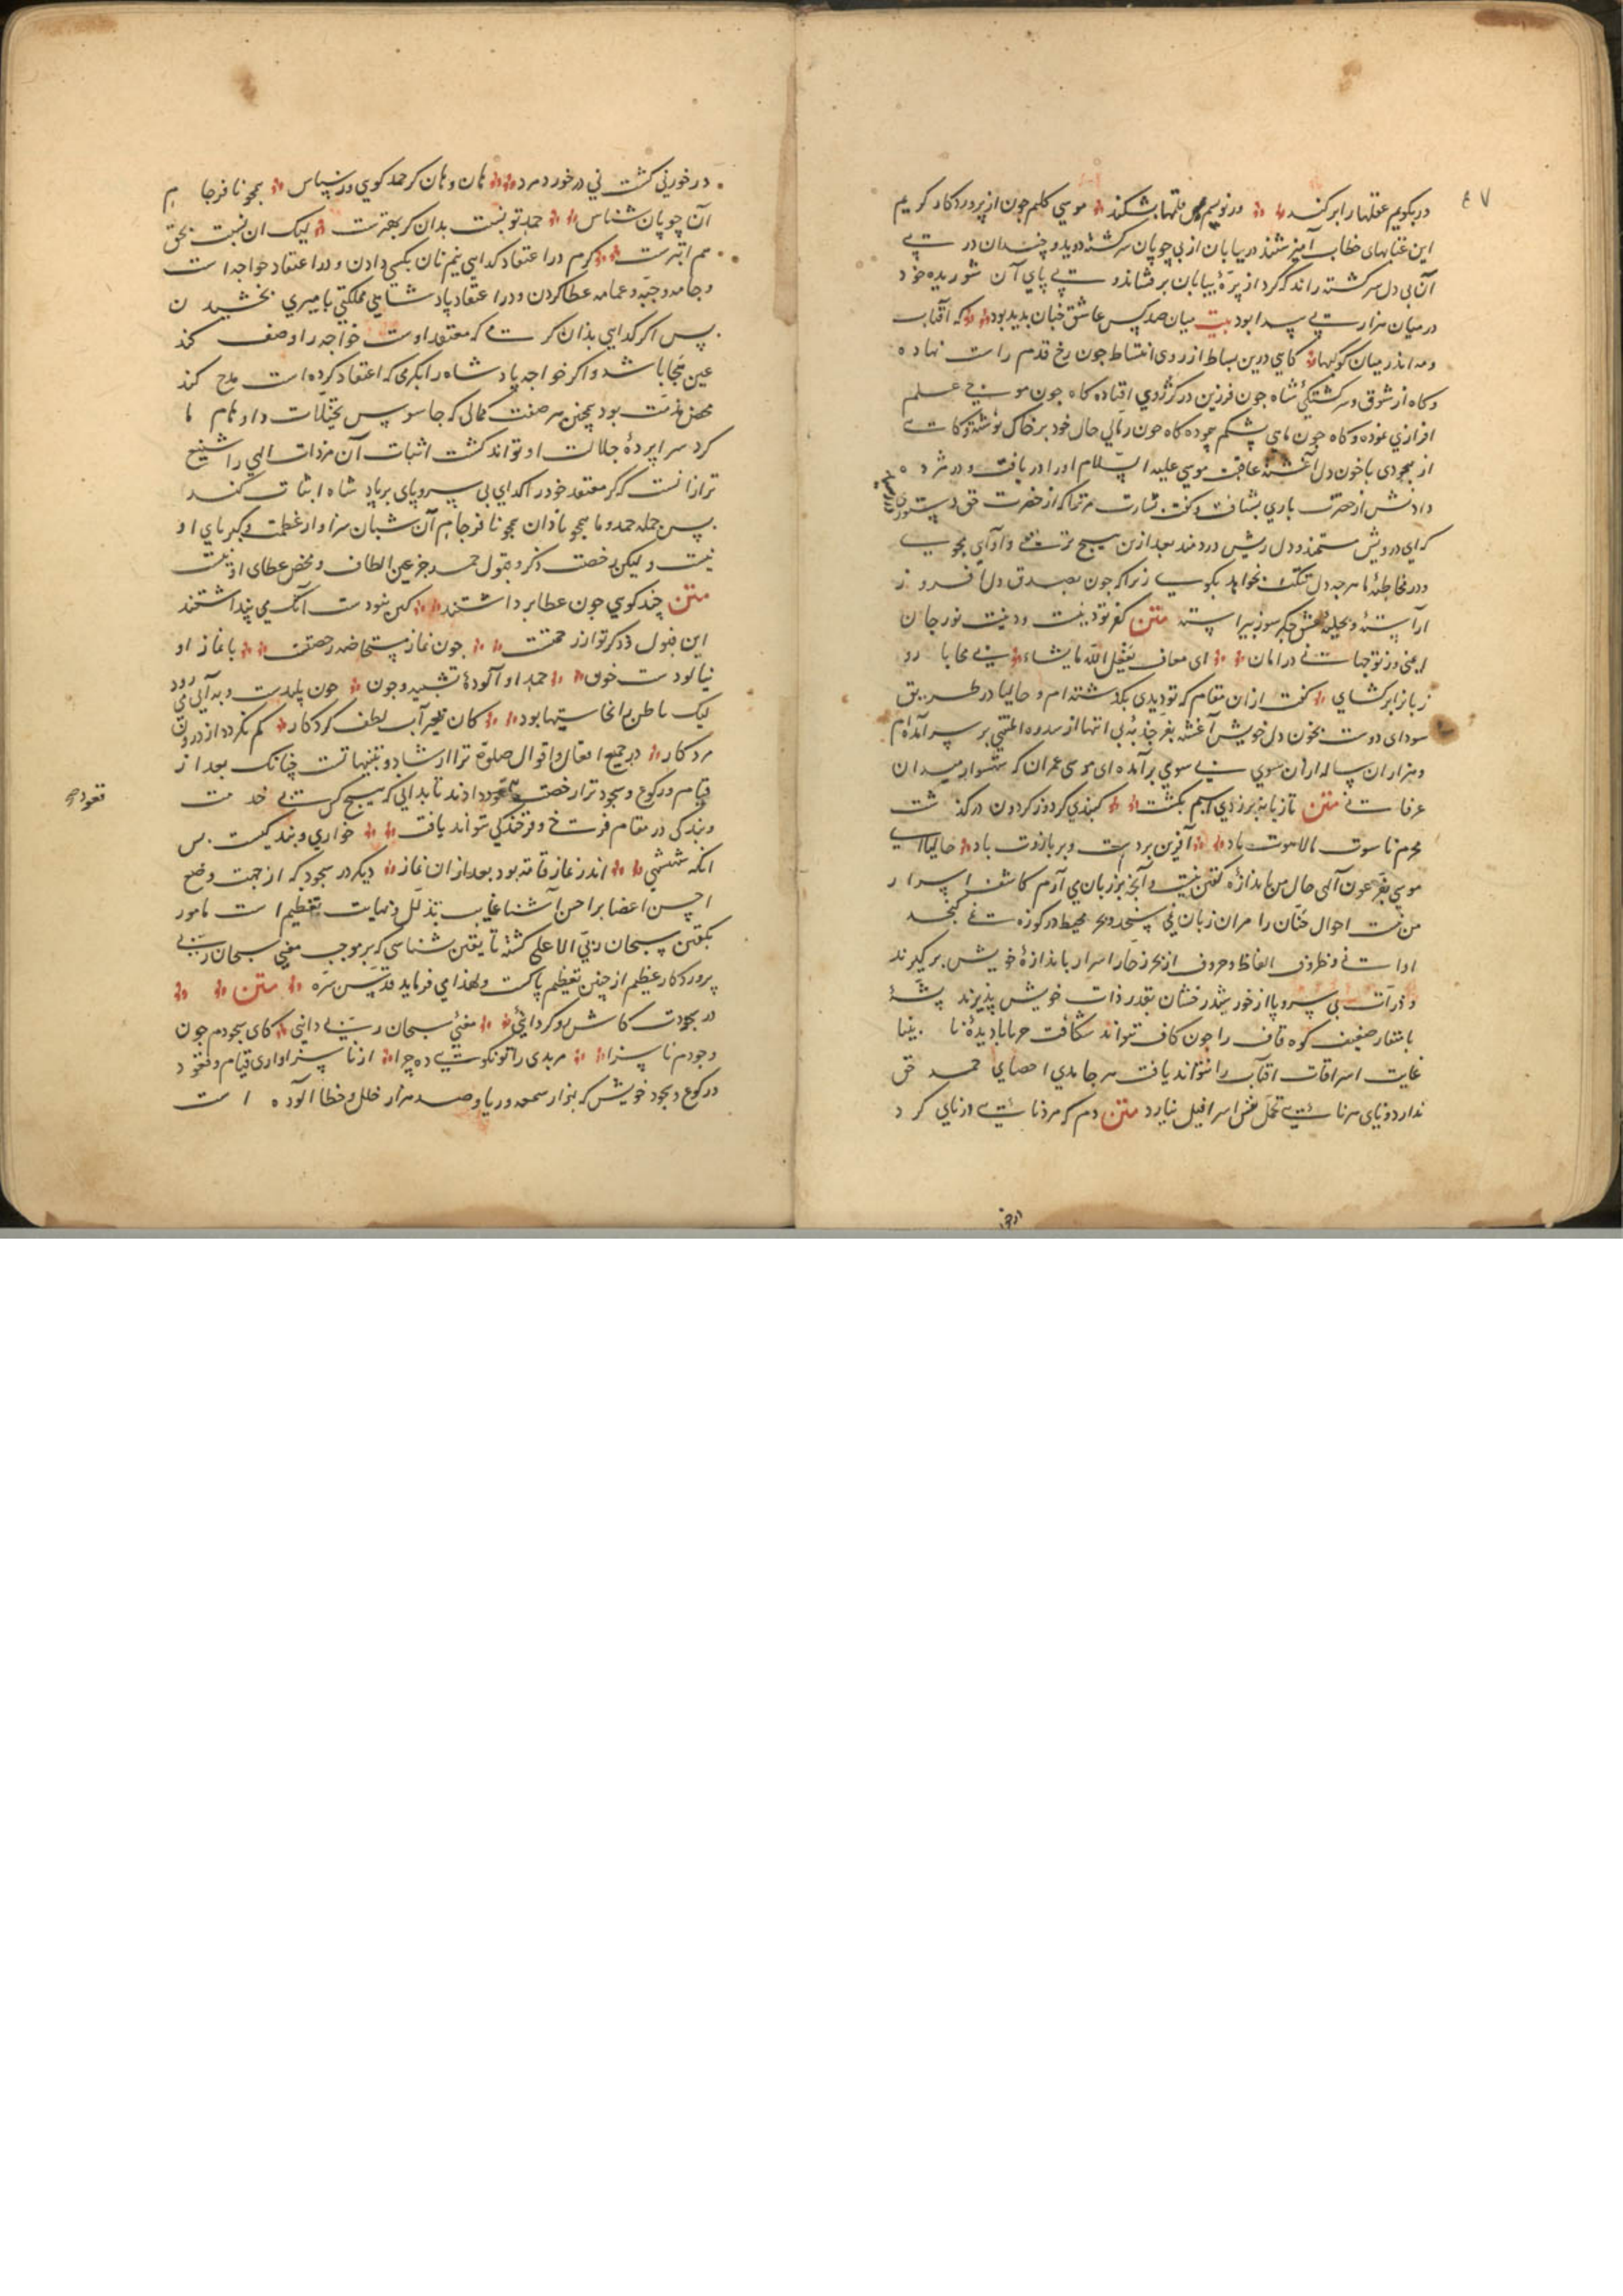 ٤٧
در بگویم عقلها را برکند ور نویسم بس قلمها بشکند موسی کلیم چون از پروردکار کریم
این عتابهای خطاب آمیز شنید در بیابان از پی چوپان سرکشته دوید و چندان در پی
آن بی دل سرکشته راند که کرد از پرّهٔ بیابان برفشاند و پی پای آن شوریده خود
در میان هزار پی پیدا بود بیت میان صد کس عاشق چنان پدید بود که آفتاب
و مه اندر میان کوکبها کاهی درین بساط از روی انبساط چون رخ قدم راست نهاده
و کاه از شوق و سرکشتکی شاه چون فرزین در کژروی افتاده کاه چون موجی علم
افرازی نموده و کاه چون ماهی بشکم بوده کاه چون رمالی حال خود بر خاک نوشته و کاهی
از بیخودی با خون دل آغشته عاقبت موسی علیه السلام او را دریافت و در مژده
دادنش از حضرت باری بشتافت و کفت بشارت مر ترا که از حضرت حق دستوری
که ای درویش مستمند و دل ریش دردمند بعد ازین هیچ ترتیبی و آدابی مجوی
و در مخاطبهٔ ما هر چه دل تنکت بخواهد بکوی زیرا که چون بصدق دل افروز
آراستهٔ و بحلیهٔ عشق جکر سوز پیراسته متن کفر تو دینست و دینت نور جان
ایمنی وز تو جهانی در امان ای معاف یفعل الله ما یشاء بی محابا رو
زبانرا برکشای کفت ازان مقام که تو دیدی بکذشته ام و حالیا در طریق
سودای دوست بخون دل خویش آغشته بفر جذبهٔ بی انتها از سدره المنتهی بر سر آمده ام
و هزاران ساله ازان سوی بی سویی برآمده ای موسی عمران که شهسوار میدان
عرفانی متن تازیانه بر زدی اسبم بکشت کنبدی کرد و ز کردون درکذشت
محرم ناسوت ما لاهوت باد آفرین بر دست و بر بازوت باد حالیا ای
موسی بفرّ عون آلهی حال من باندازهٔ کفتن نیست و آنچه بر زبان می آرم کاشف اسرار
من نیست احوال جَنان را میزان زبان نمی سنجد و بحر محیط در کوزهٔ نمی کنجد
ادانی و ظروف الفاظ و حروف از بحر زخّار اسرار باندازهٔ خویش برکیرند
و ذرات بی سر و پا از خورشید رخشان بقدر ذات خویش پذیرند پشهٔ
با منقار ضعیف کوه قاف را چون کاف نتواند شکافت حربا با دیدهٔ نا بینا
غایت اشراقات آفتاب را نتواند یافت هر جامدی احصای حمد حق
ندارد و نای هر نائی تحمل نفس اسرافیل نیارد متن دم که مرد نائی در نای کرد
در خور نی کشت نی در خورد مرد هان و هان کر حمد کویی ور سپاس همچو نافرجام
آن چوپان شناس حمد تو نسبت بدان کر بهترست لیک آن نسبت بحق
هم ابترست کرم در اعتقاد کدایی نیم نان بکسی دادن و در اعتقاد خواجه است
و جامه و جبّه و عمامه عطا کردن و در اعتقاد پادشاهی مملکتی با میری بخشیدن
پس اکر کدایی بدان کرمی که معتقد اوست خواجه را وصف کند
عین هجا باشد و اکر خواجه پادشاه را بکرمی که اعتقاد کرده است مدح کند
محض مذمّت بود همچنین هر صفت کمالی که جاسوس تخیّلات و اوهام ما
کرد سراپردهٔ جلالت او تواند کشت اثبات آن مر ذات الهی را شنیع
تر ازانست که کر معتقد خود را کدای بی سر و پای بر پادشاه اثبات کند
پس جمله حمد و ما همچو نادان همچو نافرجام آن شبان سزاوار عظمت و کبریای او
نیست و لیکن رخصت ذکر و قبول حمد جز عین الطاف و محض عطای او نیست
متن چند کویی چون غطا برداشتند کین نبودست آنک می پنداشتند
این قبول ذکر تو از رحمتست چون نماز مستحاضه رخصتست با نماز او
بیالودست خون حمد او آلودهٔ تشبیه و چون خون پلیدست و به آبی می رود
لیک باطن را نجاستها بود کان بغیر آب لطف کردکار کم نکردد از درون
مرد کار در جمیع افعال و اقوال صلوة ترا ارشاد و تنبیهاتست چنانک بعد از
قیام و رکوع و سجود ترا رخصت قعود دادند تا بدانی که هیچ کس بی خدمت
قعود صح
و بندکی در مقام فرّخ و فرخندکی نتواند یافت خواری و بندکیست پس
آنکه شهی اندر نماز قامه بود بعد ازان نماز دیکر در سجود که از جهت وضع
احسن اعضا بر اخس آشنا غایت تذلّل و نهایت تعظیم است مامور
بکفتن سبحان ربی الاعلی کشته تا یقین شناسی که بر موجب معنی سبحان ربی
پروردکار عظیم از چنین تعظیم پاکست و لهذا می فرماید قدّس سرّه متن
در سجودت کاش رو کردانیی معنی سبحان ربی دانیی کای سجودم چون
وجودم ناسزا مر بدی را تو نکویی ده جزا از ناسزاواری قیام و قعود
و رکوع و سجود خویش که بهزار سمعه و ریا و صد هزار خلل و خطا آلوده است